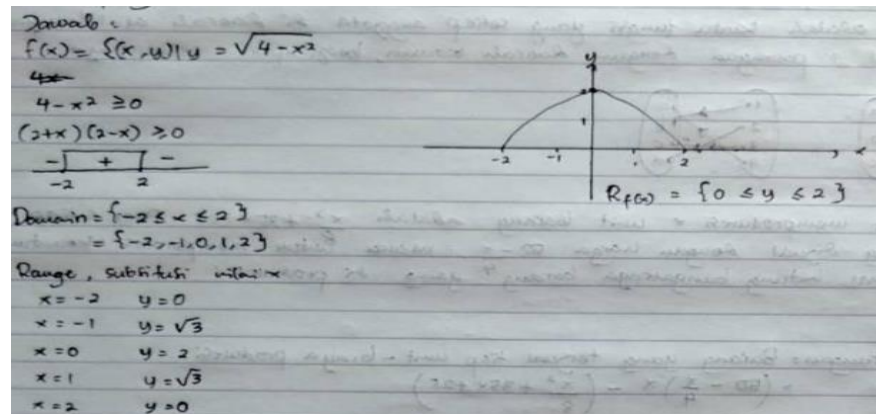 Jawab :
f(x) = {(x, y) | y = √4 - x²
4 - x² ≥ 0
(2+x) (2-x) ≥ 0
- + -
-2 2
Domain = {-2 ≤ x ≤ 2}
= {-2, -1, 0, 1, 2}
Range, substitusi nilai x
x = -2 y = 0
x = -1 y = √3
x = 0 y = 2
x = 1 y = √3
x = 2 y = 0
y
2
1
-2 -1 1 2 x
R f(x) = {0 ≤ y ≤ 2}